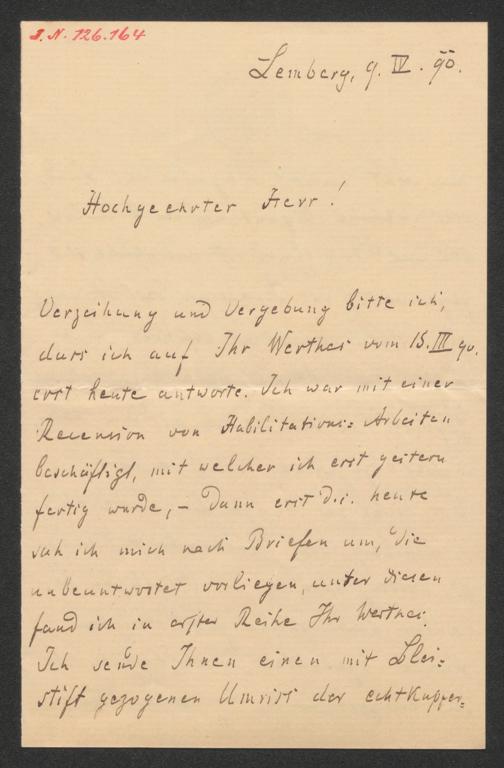 J.N. 126.164
Lemberg, 9. IV. 90.
Hochgeehrter Herr!
Verzeihung und Vergebung bitte ich,
dass ich auf Ihr Werthes vom 15. III 90.
erst heute antworte. Ich war mit einer
Recension von Habilitations= Arbeiten
beschäftigt, mit welcher ich erst gestern
fertig wurde, – Dann erst d.i. heute
sah ich mich nach Briefen um, die
unbeantwortet vorliegen, unter diesen
fand ich in erster Reihe Ihr Werthes.
Ich sende Ihnen einen mit Blei=
stift gezogenen Umriss der echtKupper=